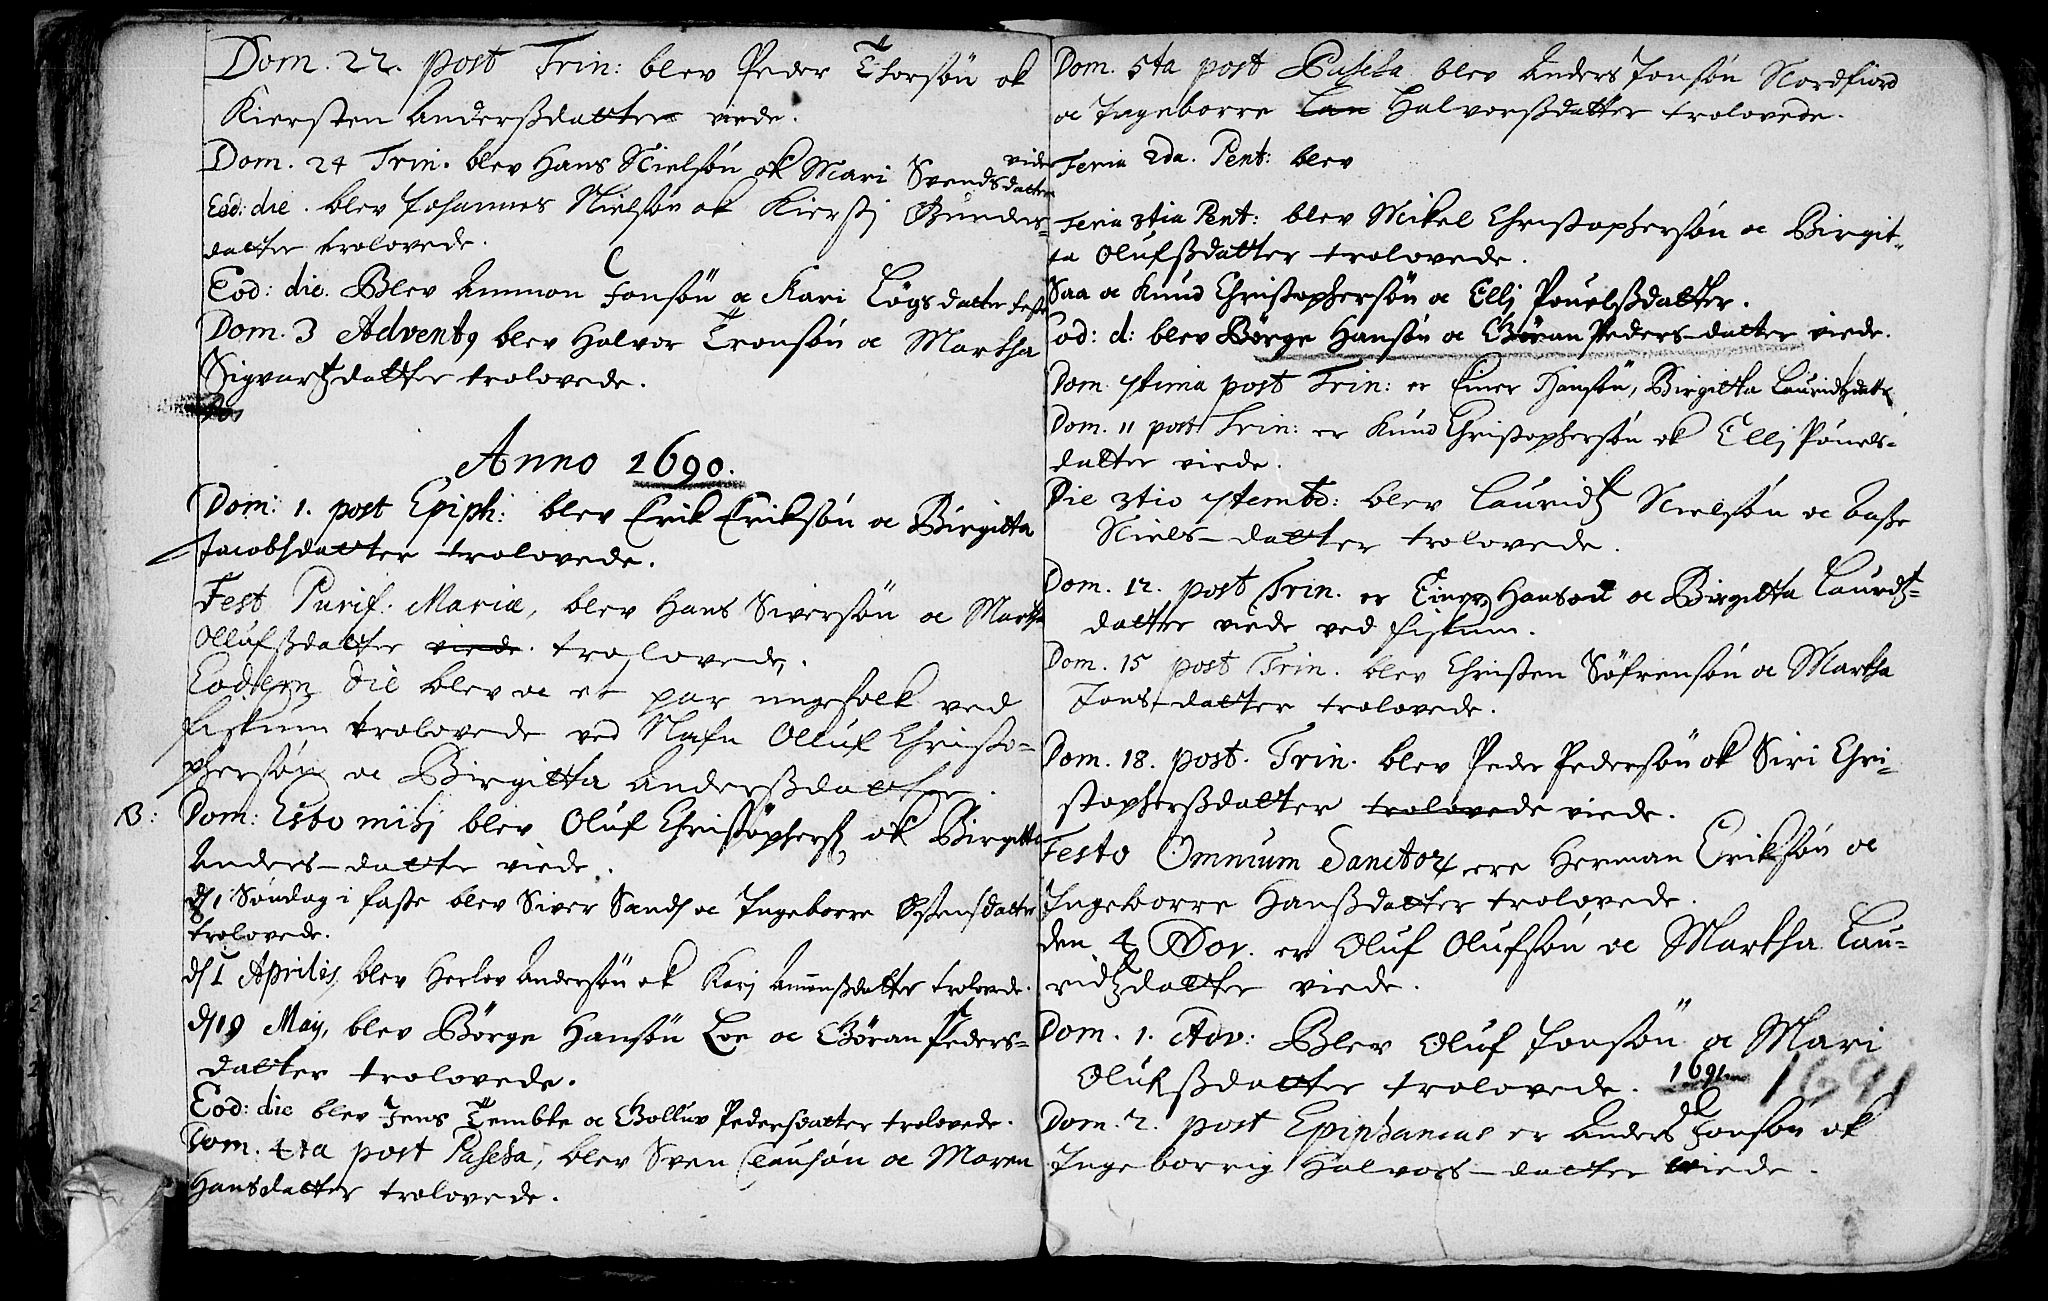 Dom. 22. post Trin: blev Peder Thorsøn ok
Kiersten Andersdatter viede.
Dom. 24 Trin. blev Hans Nielsøn ok Mari Svendsdatter viede
Eod: die. blev Johannes Nielsøn ok Kiersti Gunders-
datter trolovede.
Eod: die. Blev Ammon Jonsøn oc Kari Løgsdatter
Dom. 3 Advent9 blev Halvor Tronsøn oc Martha
Sigvartzdatter trolovede.
Anno 1690.
Dom: 1. post Epiph: blev Erik Eriksøn oc Birgitta
Jacobsdatter trolovede.
Fest Purif: Mariæ, blev Hans Siversøn oc Martha
Ollufsdatter viede. trolovede.
Eodem die blev oc et par ungefolk ved
Fiskum trolovede ved Nafn Olluf Christo-
phersøn oc Birgitta Andersdatter.
B: Dom: Esto mihj blev Oluf Christophers ok Birgitta
Anders-datter viede.
d 1 Søndag i faste blev Siver Sands oc Ingeborre Østensdatter
trolovede.
d 1 Aprilis, blev Herlov Andersøn ok Karj Amunsdatter trolovede.
d 19 Maij, blev Børge Hansøn Loe oc Gøran Peders-
datter trolovede.
Eod: die blev Jens Tembte oc Golluv Pedersdatter trolovede.
Dom. 4ta post Pascha, blev Sven Clausøn oc Maren
Hansdatter trolovede.
Dom. 5ta post Pascha blev Anders Jonsøn Nordfiord
oc Ingeborre Lau Halvorsdatter trolovede.
Feria 2da. Pent: blev
Feria 3tia Pent: blev Mikel Christophersøn oc Birgit-
ta Olufsdatter trolovede.
Saa oc Knud Christophersøn oc Ellj Pouelsdatter.
Eod: d: blev Børge Hansøn oc Gøran Peders-datter viede.
Dom. 7tima post Trin: er Einer Hansøn, Birgitta Lauridtzdatter
Dom. 11 post Trin: er Knud Christophersøn ok Ellj Pouels-
datter viede.
Die 3tio 7tembr: blev Lauridtz Nielsøn oc Aase
Niels-datter trolovede.
Dom. 12. post Trin. er Einer Hansøn oc Birgitta Lauridtz-
datter viede ved Fiskum.
Dom. 15 post Trin. blev Christen Søfrensøn oc Martha
Jons-datter trolovede.
Dom. 18. post. Trin. blev Peder Pedersøn ok Siri Chri-
stophersdatter trolovede viede.
Festo Omnium Sanctor ere Herman Eriksøn oc
Ingeborre Hansdatter trolovede.
den 4 Nov. er Oluf Olufsøn oc Martha Lau-
ridtzdatter viede.
Dom. 1. Adv: Blev Oluf Jonsøn oc Mari
Olufsdatter trolovede. 1691 1691
Dom. 2. post Epiphanias er Anders Jonsøn ok
Ingeborrig Halvors-datter viede.